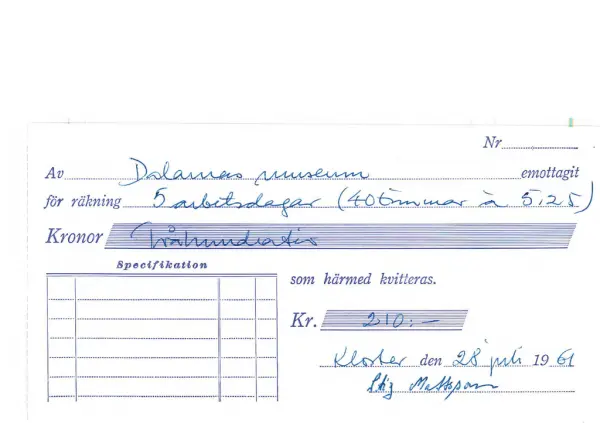 Nr
Av Dalarnas museum emottagit
för räkning 5 arbetsdagar (40 timmar à 5,25)
Kronor Tvåhundratio
Specifikation
som härmed kvitteras.
Kr. 210:-
Kloster den 28 juli 1961
Stig Mattsson